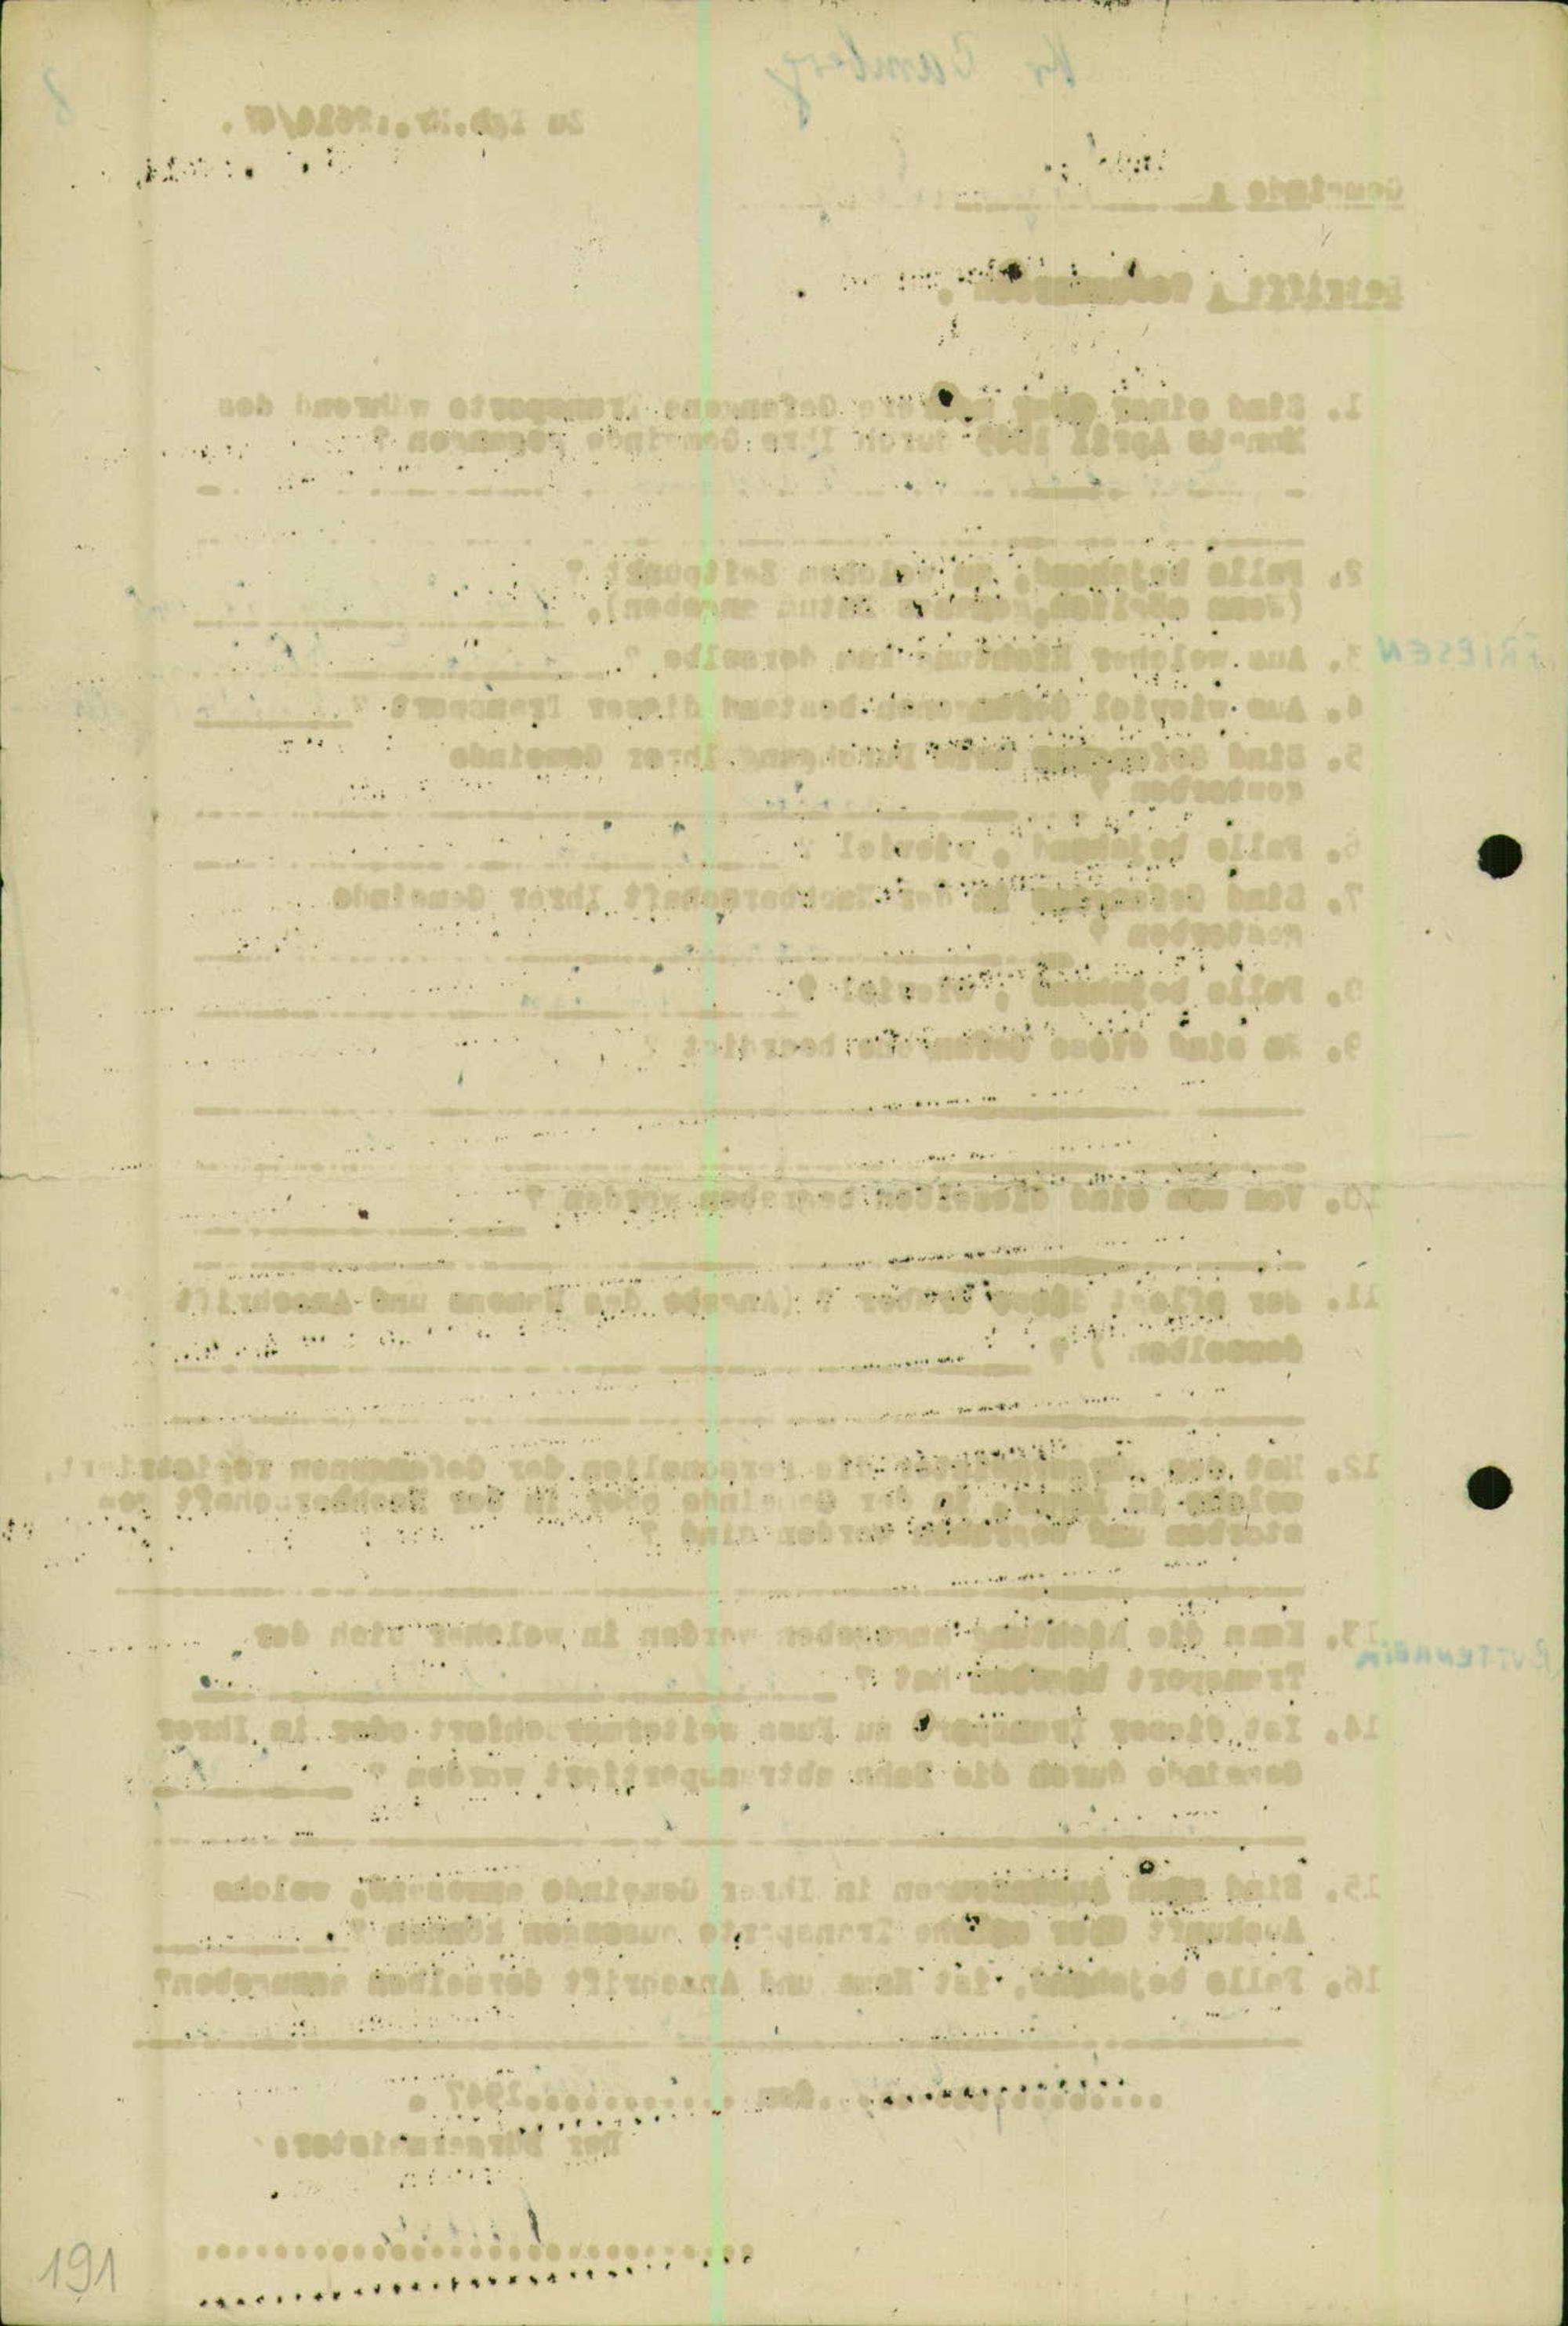 Kr Bamberg
8
Zu Tgb.Nr.:
Gemeinde :
Betrifft :
1. Sind einer oder mehrere Gefangene Transporte während des
Monats April 1945 durch Ihre Gemeinde gegangen ?
2. Falls bejahend, zu welchem Zeitpunkt ?
(Wenn möglich, genaues Datum angeben).
FRIESEN
3. Aus welcher Richtung kam derselbe ?
4. Aus wieviel Gefangenen bestand dieser Transport ?
5. Sind Gefangene beim Durchgang Ihrer Gemeinde
gestorben ?
6. Falls bejahend , wieviel ?
7. Sind Gefangene in der Nachbarschaft Ihrer Gemeinde
gestorben ?
8. Falls bejahend , wieviel ?
9. Wo sind diese Gefangene beerdigt ?
10. Von wem sind dieselben begraben worden ?
11. Wer pflegt diese Gräber ? (Angabe des Namens und Anschrift
desselben ) ?
12. Hat das die Personalien der Gefangenen registriert,
welche in Ihrer in der Gemeinde oder in der Nachbarschaft ge-
storben und begraben worden sind ?
13. Kann die Richtung angegeben werden in welcher sich der
BUTTENHEIM
Transport begeben hat ?
14. Ist dieser Transport zu Fuss weitermarschiert oder in Ihrer
Gemeinde durch die Bahn abtransportiert worden ?
15. Sind noch in Ihrer Gemeinde anwesend, welche
Auskunft über solche Transporte aussagen können ?
16. Falls bejahend, ist Name und Anschrift derselben anzugeben?
den 1947 .
Der Bürgermeister:
191